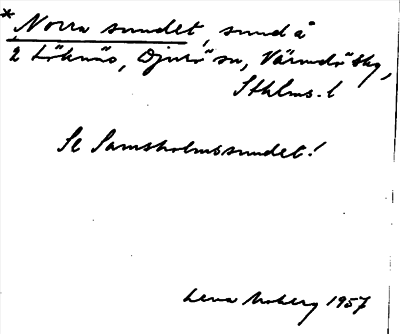 * Norra sundet, sund å
2 Löknäs, Djurö sn, Värmdö skg,
Sthlms. l
Se Samsholmssundet!
Lena Moberg 1957